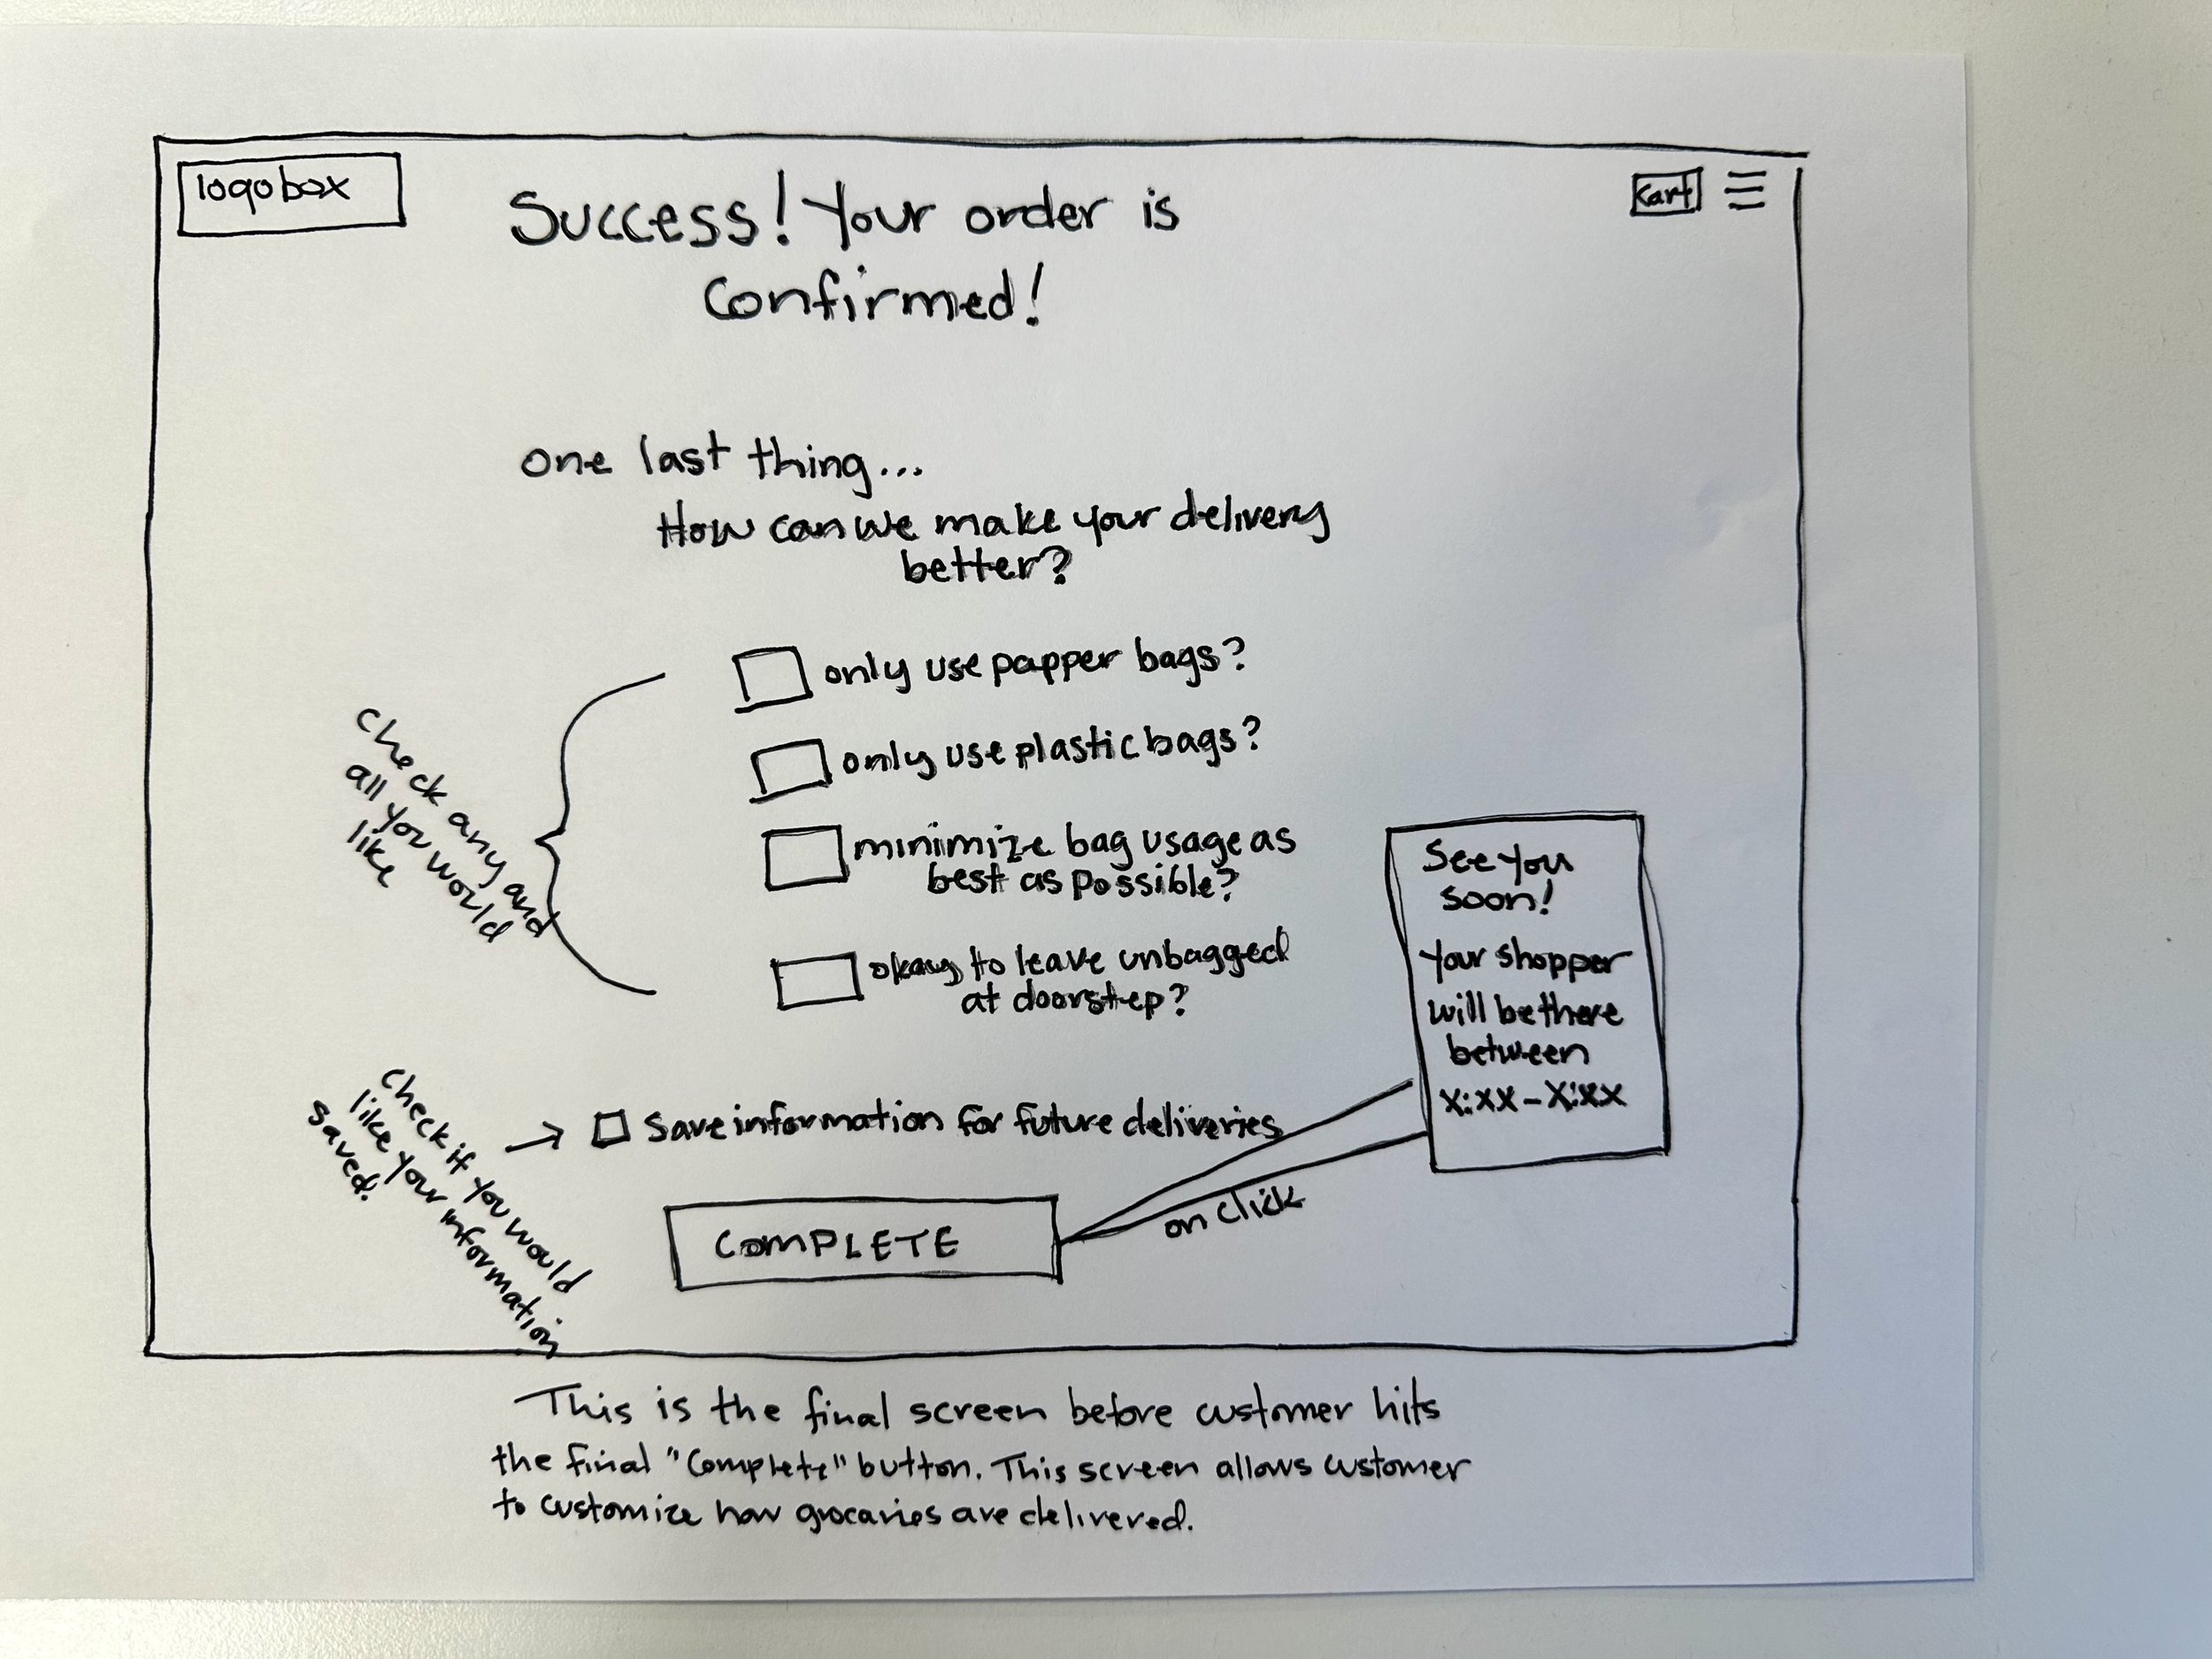 logobox
Success! Your order is
Confirmed!
Cart
one last thing...
How can we make your delivery
better?
only use papper bags?
only use plastic bags?
minimize bag usage as
best as possible?
okay to leave unbagged
at doorstep?
check any and
all you would
like
See you
soon!
Your shopper
will be there
between
X:XX - X:XX
check if you would
like your information
saved.
Save information for future deliveries
COMPLETE
on click
This is the final screen before customer hits
the final "Complete" button. This screen allows customer
to customize how grocaries are delivered.